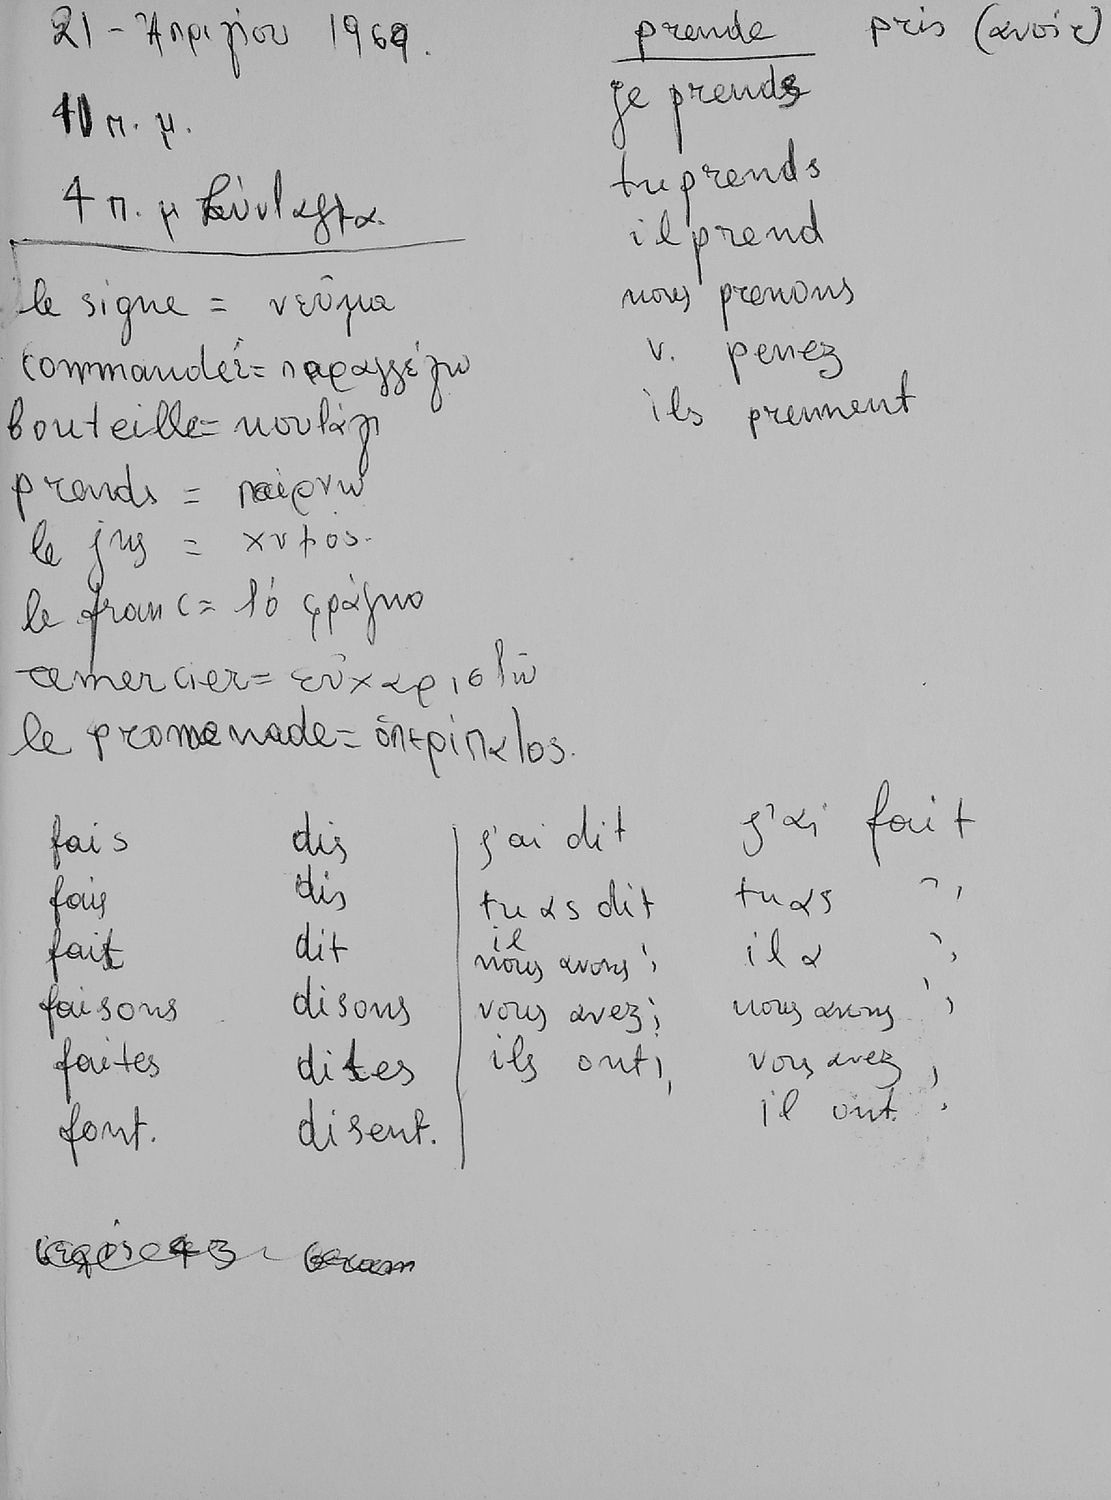 21 - Ἀπριλίου 1969.
π. μ.
4 π. μ Σύνταγμα.
le signe = νεῦμα
commander = παραγγέλω
bouteille = μπουκάλι
prends = παίρνω
le jus = χυμός.
le franc = τό φράγκο
remercier = εὐχαριστῶ
le promenade = ὁ περίπατος.
prende pris (avoir)
je prends
tu prends
il prend
nous prenons
v. penez
ils prennent
fais dis j'ai dit j'ai fait
fais dis tu as dit tu as "
fait dit il il a "
nous avons "
faisons disons vous avez " nous avons "
faites dites ils ont " vous avez "
font. disent. il ont "